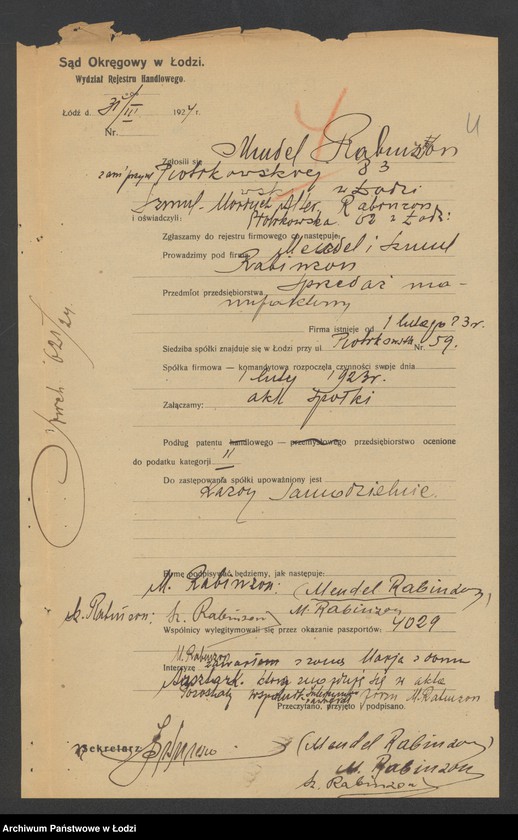 Sąd Okręgowy w Łodzi.
Wydział Rejestru Handlowego.
Łódź d. 31/III 1924 r.
Nr.
4
Zgłosili się Mendel Rabinzon
zam przy Piotrkowskiej 83
w Łodzi
Szmul-Mordych Rabinzon
i oświadczyli: Piotrkowska 62 z Łodzi:
Zgłaszamy do rejestru firmowego co następuje:
Prowadzimy pod firmą Mendel i Szmul
Rabinzon
Przedmiot przedsiębiorstwa Sprzedaż ma-
nufaktury
Firma istnieje od 1 lutego 23 r.
Siedziba spółki znajduje się w Łodzi przy ul. Piotrkowsk. Nr. 59.
Spółka firmowa — komandytowa rozpoczęła czynności swoje dnia
1 luty 1923 r.
Załączamy: akt spółki
Podług patentu handlowego — przemysłowego przedsiębiorstwo ocenione
do podatku kategorji II
Do zastępowania spółki upoważniony jest
każdy samodzielnie.
Firmę podpisywać będziemy, jak następuje:
M. Rabinzon: (Mendel Rabinzon)
Sz. Rabinzon: Sz. Rabinzon M. Rabinzon
Wspólnicy wylegitymowali się przez okazanie paszportów: 4029
M. Rabinzon
Intercyzę zawartem z żoną Marją z domu
która znajduje się w akta
firm M. Rabinzon
Przeczytano, przyjęto i podpisano.
Sekretarz
(Mendel Rabinzon)
M. Rabinzon
Sz. Rabinzon
621/24
Archiwum Państwowe w Łodzi